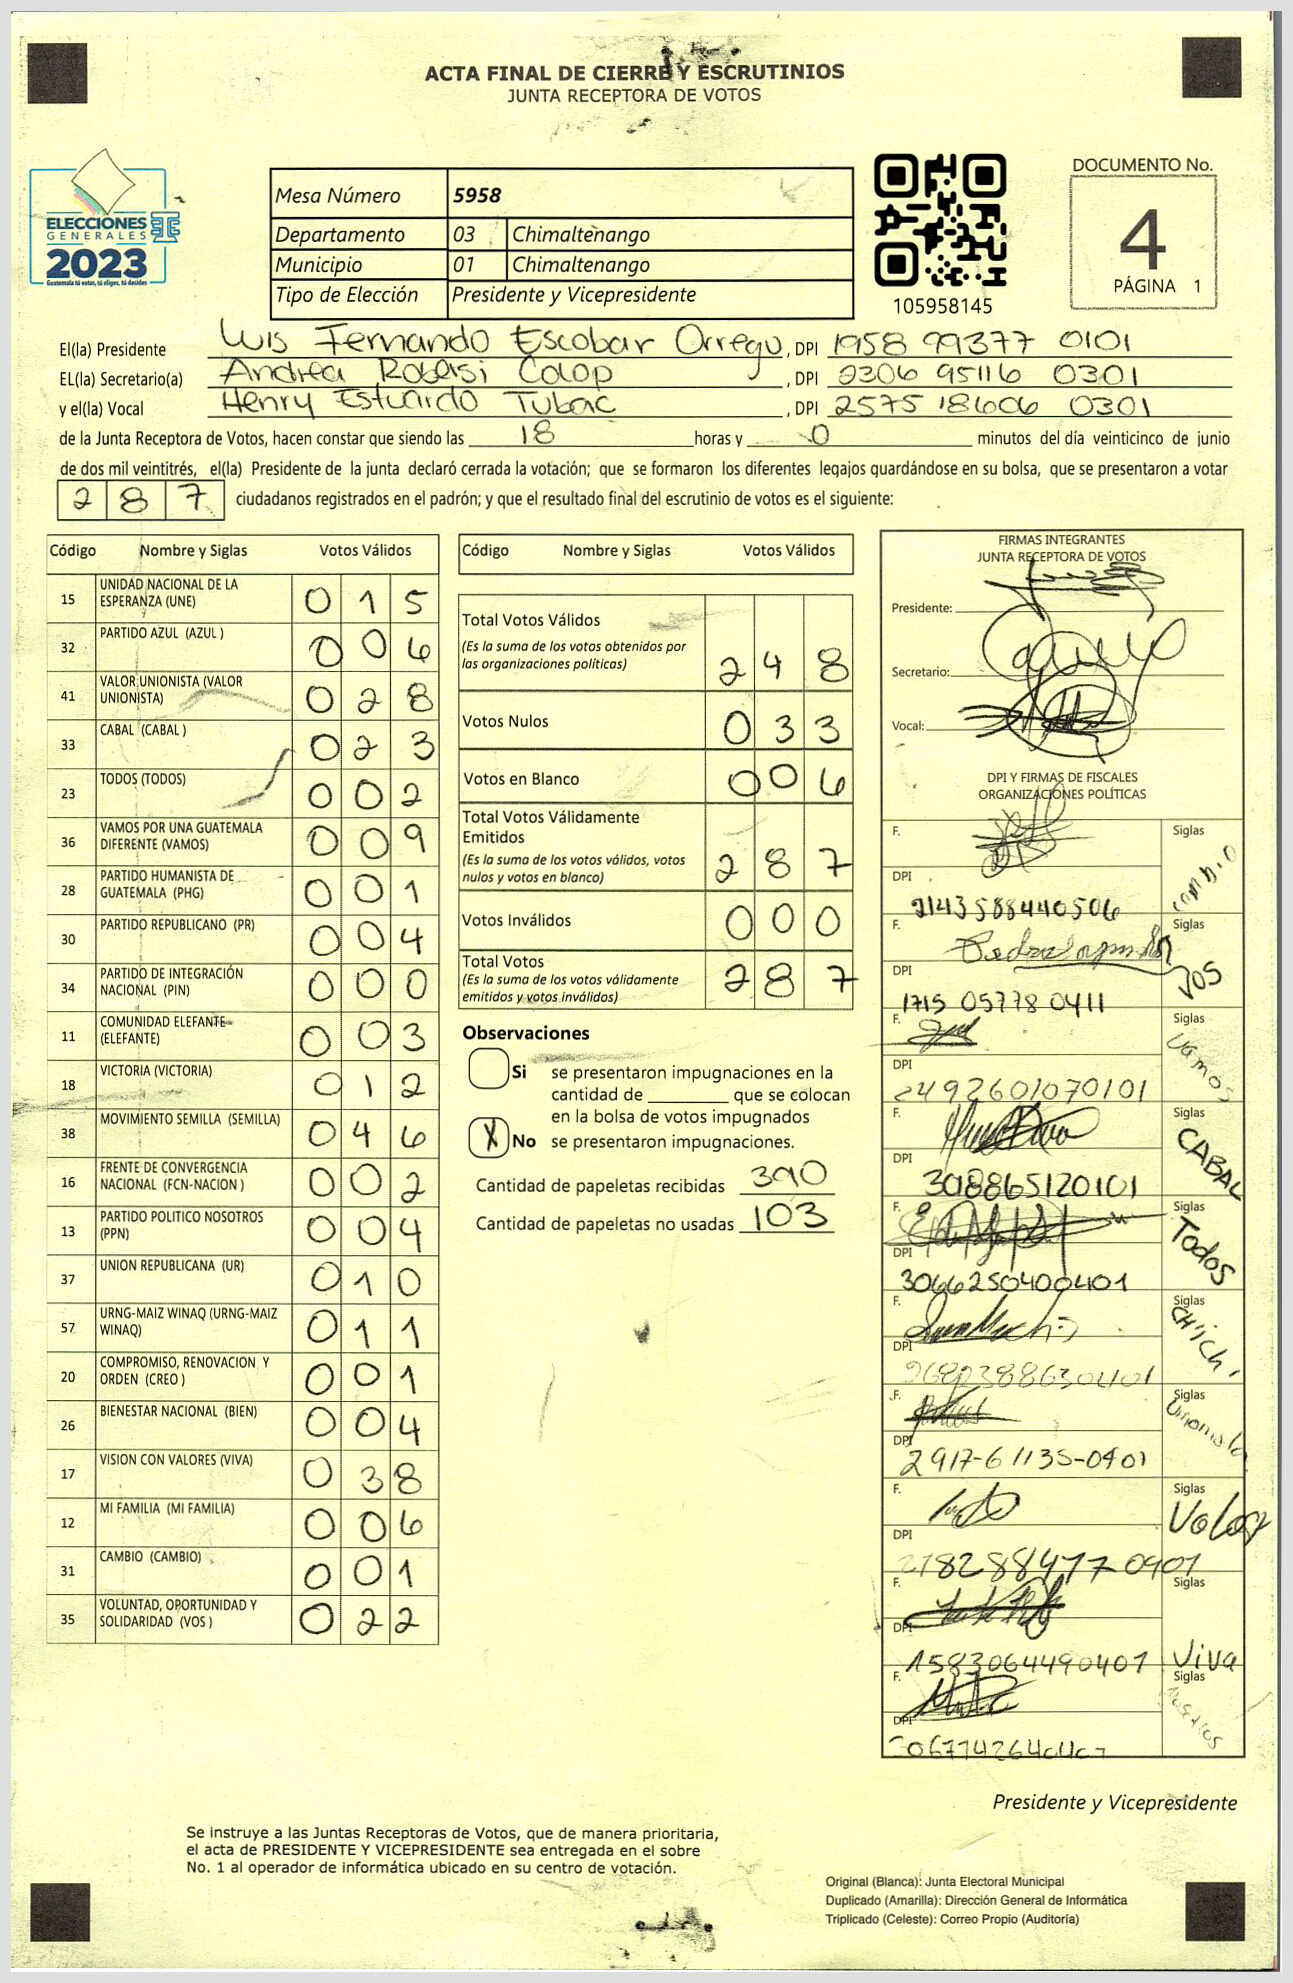 ACTA FINAL DE CIERRE Y ESCRUTINIOS
JUNTA RECEPTORA DE VOTOS
ELECCIONES
GENERALES
2023
Guatemala tú votas, tú eliges, tú decides
Mesa Número 5958
Departamento 03 Chimaltenango
Municipio 01 Chimaltenango
Tipo de Elección Presidente y Vicepresidente
105958145
DOCUMENTO No.
4
PÁGINA 1
El(la) Presidente Luis Fernando Escobar Orrego, DPI 1958 99377 0101
EL(la) Secretario(a) Andrea Colop, DPI 2306 95116 0301
y el(la) Vocal Henry Estuardo Tubac, DPI 2575 18606 0301
de la Junta Receptora de Votos, hacen constar que siendo las 18 horas y 0 minutos del día veinticinco de junio
de dos mil veintitrés, el(la) Presidente de la junta declaró cerrada la votación; que se formaron los diferentes legajos guardándose en su bolsa, que se presentaron a votar
287 ciudadanos registrados en el padrón; y que el resultado final del escrutinio de votos es el siguiente:
Código Nombre y Siglas Votos Válidos
15 UNIDAD NACIONAL DE LA ESPERANZA (UNE) 015
32 PARTIDO AZUL (AZUL ) 006
41 VALOR UNIONISTA (VALOR UNIONISTA) 028
33 CABAL (CABAL ) 023
23 TODOS (TODOS) 002
36 VAMOS POR UNA GUATEMALA DIFERENTE (VAMOS) 009
28 PARTIDO HUMANISTA DE GUATEMALA (PHG) 001
30 PARTIDO REPUBLICANO (PR) 004
34 PARTIDO DE INTEGRACIÓN NACIONAL (PIN) 000
11 COMUNIDAD ELEFANTE (ELEFANTE) 003
18 VICTORIA (VICTORIA) 012
38 MOVIMIENTO SEMILLA (SEMILLA) 046
16 FRENTE DE CONVERGENCIA NACIONAL (FCN-NACION ) 002
13 PARTIDO POLITICO NOSOTROS (PPN) 004
37 UNION REPUBLICANA (UR) 010
57 URNG-MAIZ WINAQ (URNG-MAIZ WINAQ) 011
20 COMPROMISO, RENOVACION Y ORDEN (CREO ) 001
26 BIENESTAR NACIONAL (BIEN) 004
17 VISION CON VALORES (VIVA) 038
12 MI FAMILIA (MI FAMILIA) 006
31 CAMBIO (CAMBIO) 001
35 VOLUNTAD, OPORTUNIDAD Y SOLIDARIDAD (VOS ) 022
Código Nombre y Siglas Votos Válidos
Total Votos Válidos 248
(Es la suma de los votos obtenidos por
las organizaciones políticas)
Votos Nulos 033
Votos en Blanco 006
Total Votos Válidamente
Emitidos 287
(Es la suma de los votos válidos, votos
nulos y votos en blanco)
Votos Inválidos 000
Total Votos 287
(Es la suma de los votos válidamente
emitidos y votos inválidos)
Observaciones
Si se presentaron impugnaciones en la
cantidad de ________ que se colocan
en la bolsa de votos impugnados
X No se presentaron impugnaciones.
Cantidad de papeletas recibidas 390
Cantidad de papeletas no usadas 103
FIRMAS INTEGRANTES
JUNTA RECEPTORA DE VOTOS
Presidente:
Secretario:
Vocal:
DPI Y FIRMAS DE FISCALES
ORGANIZACIONES POLÍTICAS
F. Siglas Cambio
DPI 2143588440506
F. Siglas VOS
DPI 1715 05778 0411
F. Siglas Vamos
DPI 2492601070101
F. Siglas CABAL
DPI 3018865120101
F. Siglas Todos
DPI 3066250400401
F. Siglas
DPI
F. Siglas Unionista
DPI 2917-61135-0401
F. Siglas Valor
DPI
F. Siglas Viva
DPI 1583064490401
F. Siglas
DPI
Presidente y Vicepresidente
Se instruye a las Juntas Receptoras de Votos, que de manera prioritaria,
el acta de PRESIDENTE Y VICEPRESIDENTE sea entregada en el sobre
No. 1 al operador de informática ubicado en su centro de votación.
Original (Blanca): Junta Electoral Municipal
Duplicado (Amarilla): Dirección General de Informática
Triplicado (Celeste): Correo Propio (Auditoría)